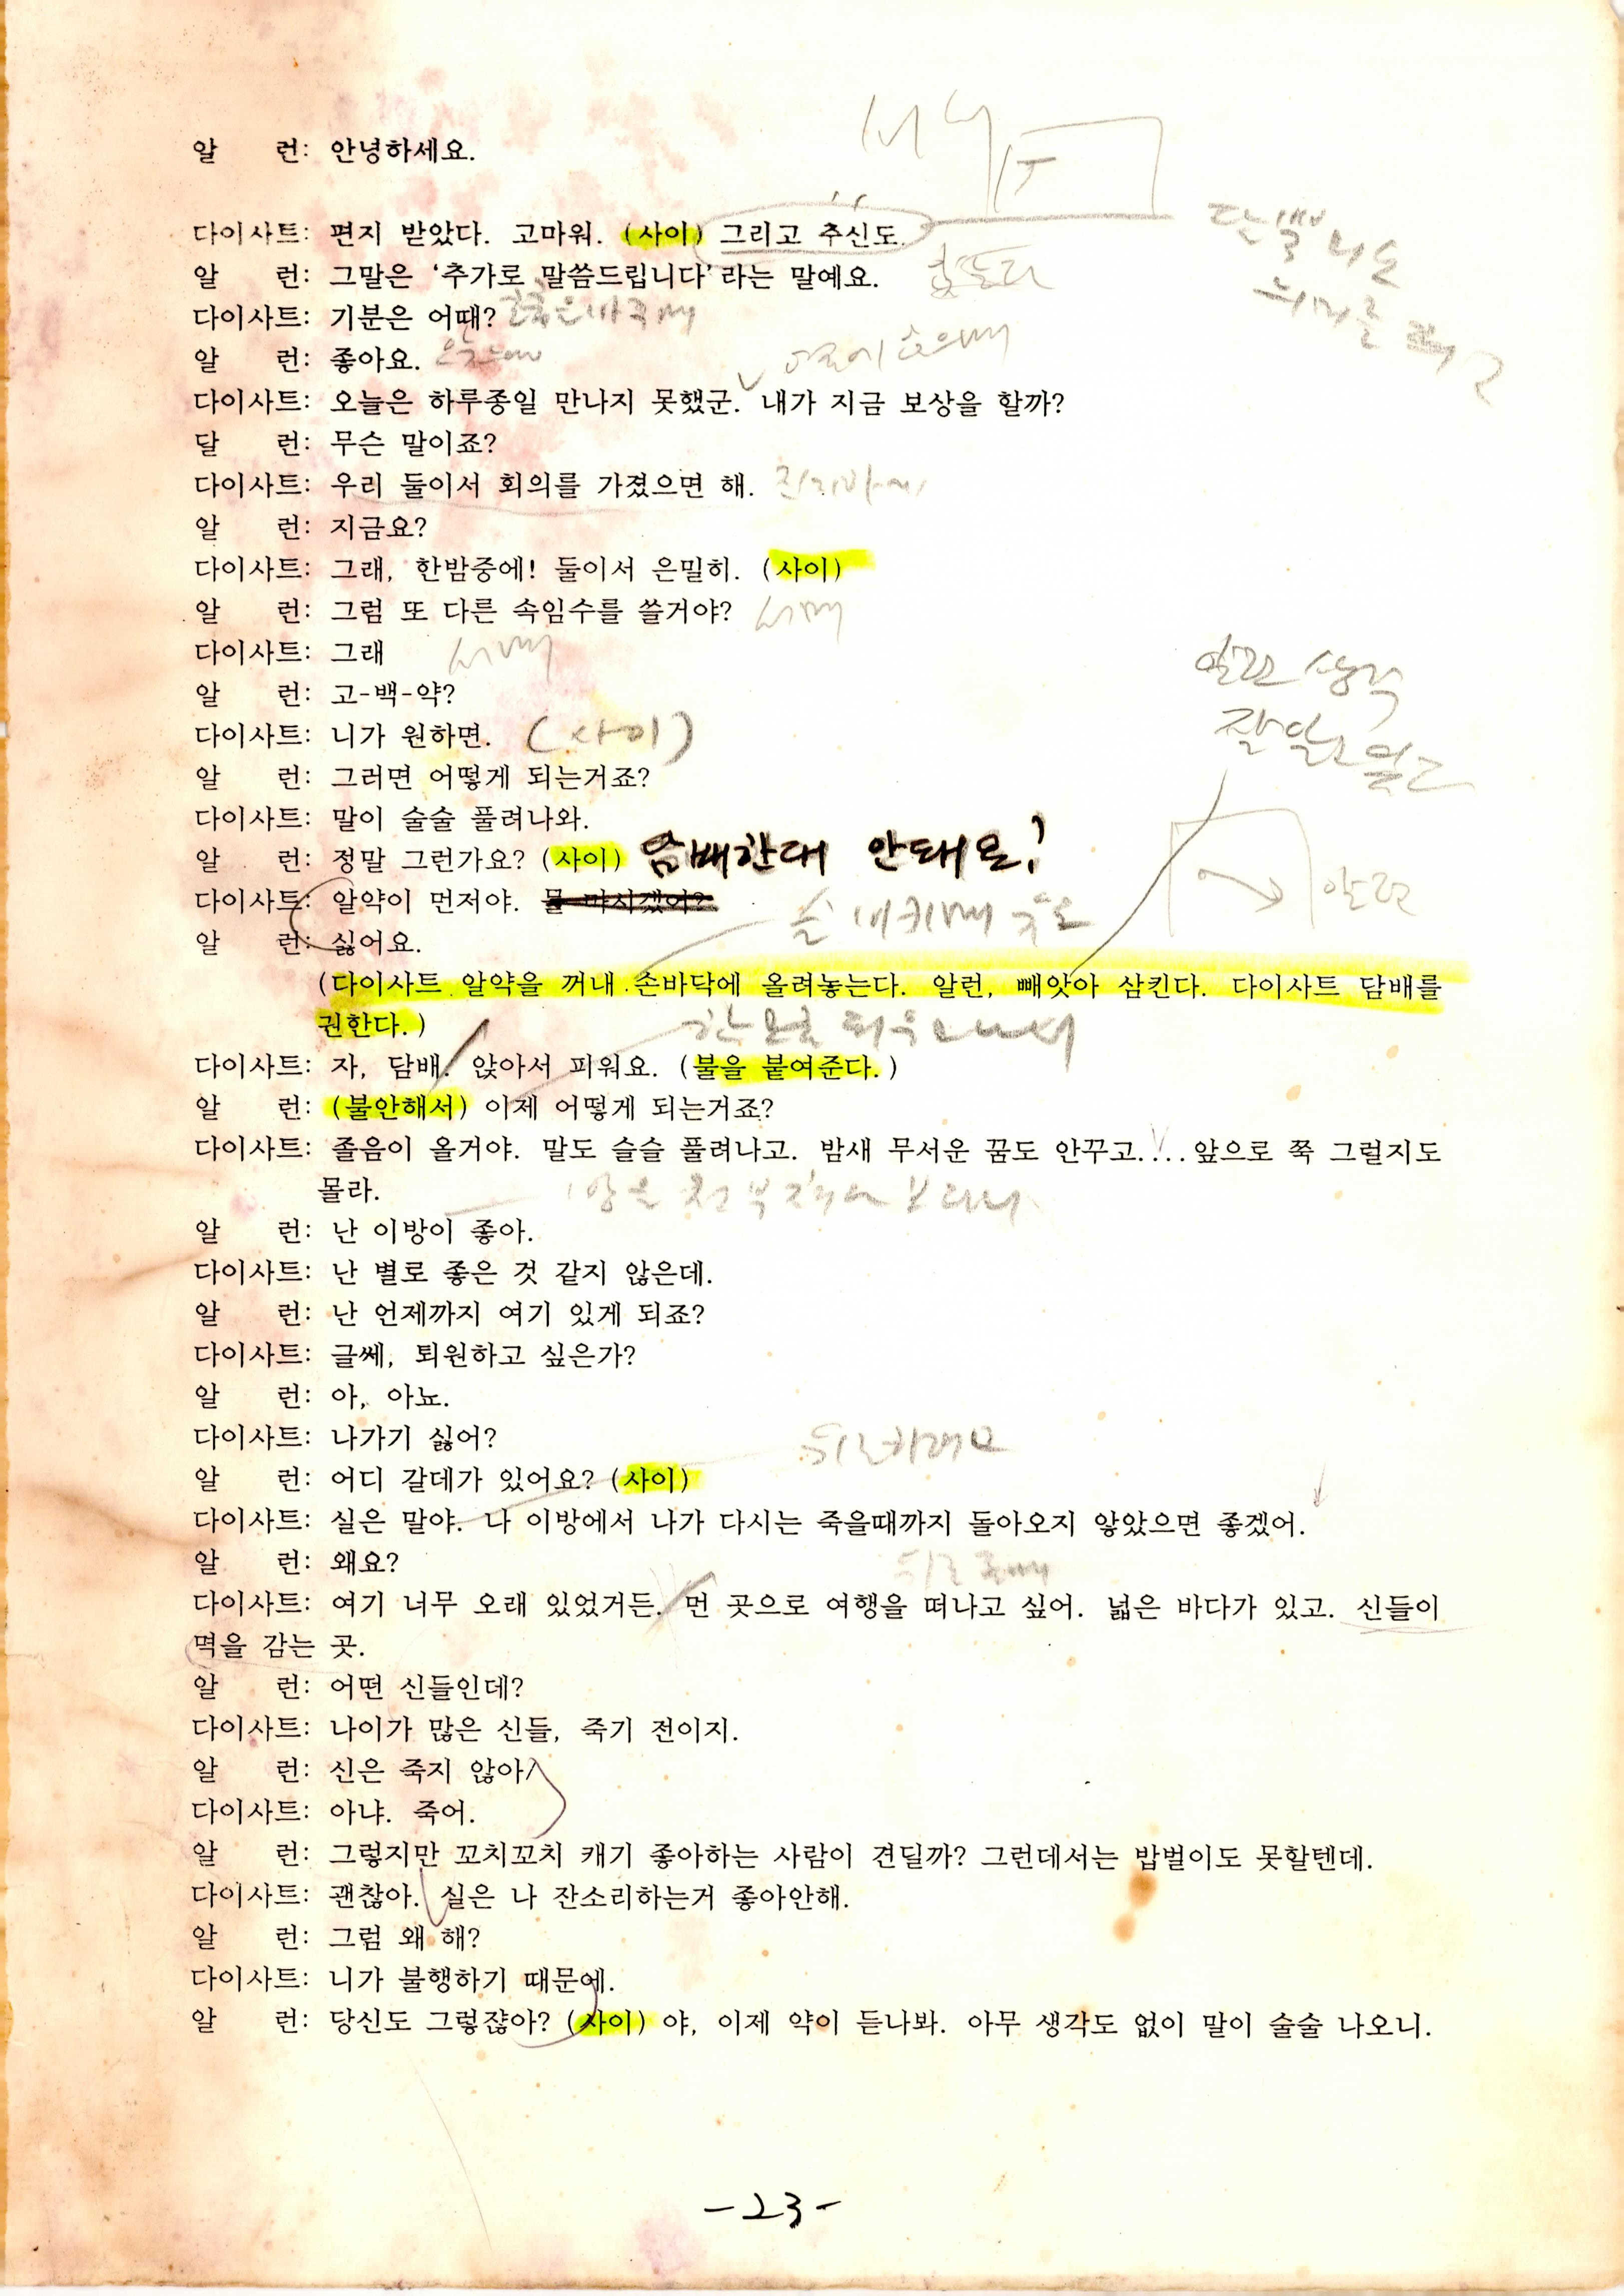 알 런: 안녕하세요.
다이사트: 편지 받았다. 고마워. (사이) 그리고 추신도.
알 런: 그말은 '추가로 말씀드립니다'라는 말예요.
다이사트: 기분은 어때?
알 런: 좋아요.
다이사트: 오늘은 하루종일 만나지 못했군. 내가 지금 보상을 할까?
달 런: 무슨 말이죠?
다이사트: 우리 둘이서 회의를 가졌으면 해.
알 런: 지금요?
다이사트: 그래, 한밤중에! 둘이서 은밀히. (사이)
알 런: 그럼 또 다른 속임수를 쓸거야?
다이사트: 그래
알 런: 고-백-약?
다이사트: 니가 원하면. (사이)
알 런: 그러면 어떻게 되는거죠?
다이사트: 말이 술술 풀려나와.
알 런: 정말 그런가요? (사이) 담배한대 안돼요?
다이사트: 알약이 먼저야. 물 마시겠어?
알 런: 싫어요.
(다이사트 알약을 꺼내 손바닥에 올려놓는다. 알런, 빼앗아 삼킨다. 다이사트 담배를
권한다.)
다이사트: 자, 담배. 앉아서 피워요. (불을 붙여준다.)
알 런: (불안해서) 이제 어떻게 되는거죠?
다이사트: 졸음이 올거야. 말도 슬슬 풀려나고. 밤새 무서운 꿈도 안꾸고.... 앞으로 쭉 그럴지도
몰라.
알 런: 난 이방이 좋아.
다이사트: 난 별로 좋은 것 같지 않은데.
알 런: 난 언제까지 여기 있게 되죠?
다이사트: 글쎄, 퇴원하고 싶은가?
알 런: 아, 아뇨.
다이사트: 나가기 싫어?
알 런: 어디 갈데가 있어요? (사이)
다이사트: 실은 말야. 나 이방에서 나가 다시는 죽을때까지 돌아오지 않았으면 좋겠어.
알 런: 왜요?
다이사트: 여기 너무 오래 있었거든. 먼 곳으로 여행을 떠나고 싶어. 넓은 바다가 있고. 신들이
멱을 감는 곳.
알 런: 어떤 신들인데?
다이사트: 나이가 많은 신들, 죽기 전이지.
알 런: 신은 죽지 않아
다이사트: 아냐. 죽어.
알 런: 그렇지만 꼬치꼬치 캐기 좋아하는 사람이 견딜까? 그런데서는 밥벌이도 못할텐데.
다이사트: 괜찮아. 실은 나 잔소리하는거 좋아안해.
알 런: 그럼 왜 해?
다이사트: 니가 불행하기 때문에.
알 런: 당신도 그렇쟎아? (사이) 야, 이제 약이 듣나봐. 아무 생각도 없이 말이 술술 나오니.
-23-